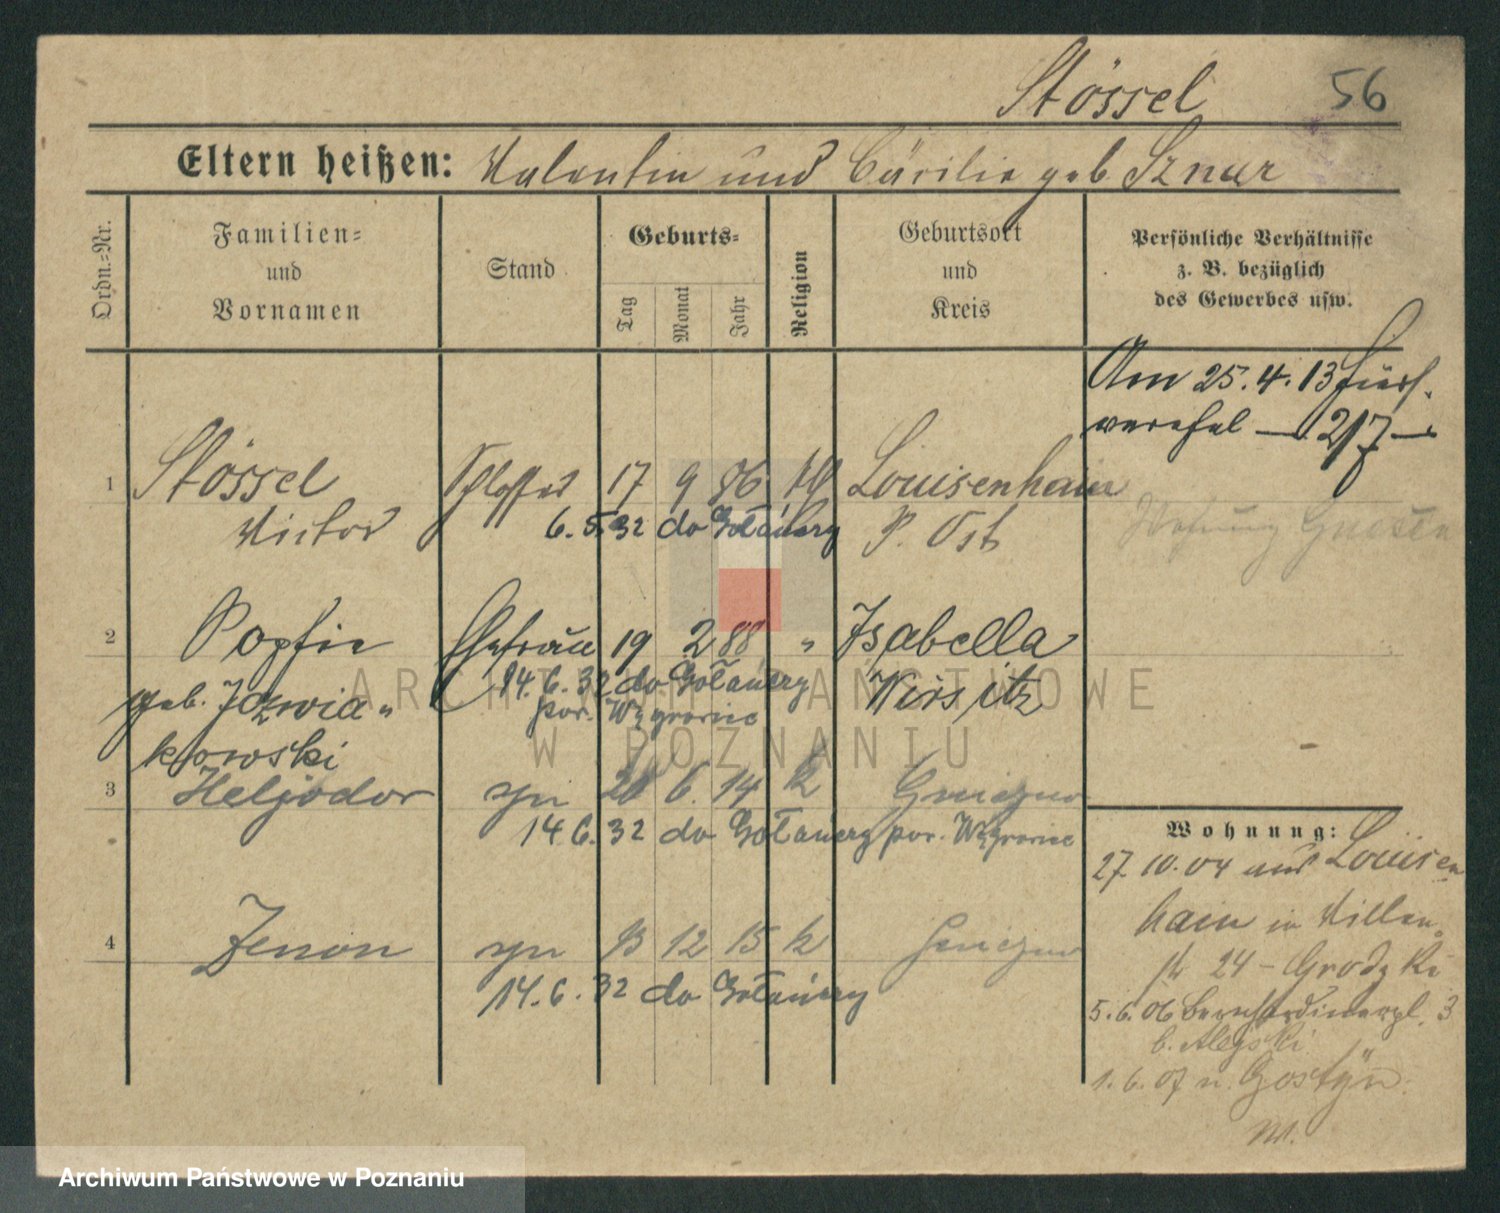 Stössel 56
Eltern heißen: Valentin und Cäcilie geb. Sznur
Ordn.-Nr.
Familien-
und
Vornamen
Stand
Geburts-
Tag
Monat
Jahr
Religion
Geburtsort
und
Kreis
Persönliche Verhältnisse
z. B. bezüglich
des Gewerbes usw.
Am 25.4.13
217
1 Stössel Schlosser 17 9 86 kth Louisenhain
Victor 6.5.32 do Gołańczy P. Ost
Wohnung Gnesen
2 Sophie Ehefrau 19 2 88 " Isabella
geb. Jozwia- 14.6.32 do Gołańczy Wirsitz
kowski pow. Wągrowiec
3 Heljodor syn 20 6. 14 k Gniezno
14 6.32 do Gołańczy pow. Wągrowiec
4 Zenon syn 12 15 k Gniezno
14.6.32 do Gołańczy
Wohnung:
27.10.04 aus Louisen
hain
24 - Grodzki
5.6.06 Bernhardinerpl. 3
b. Alejski
1.6.07 n. Gostyn
ARCHIWUM PAŃSTWOWE
W POZNANIU
Archiwum Państwowe w Poznaniu